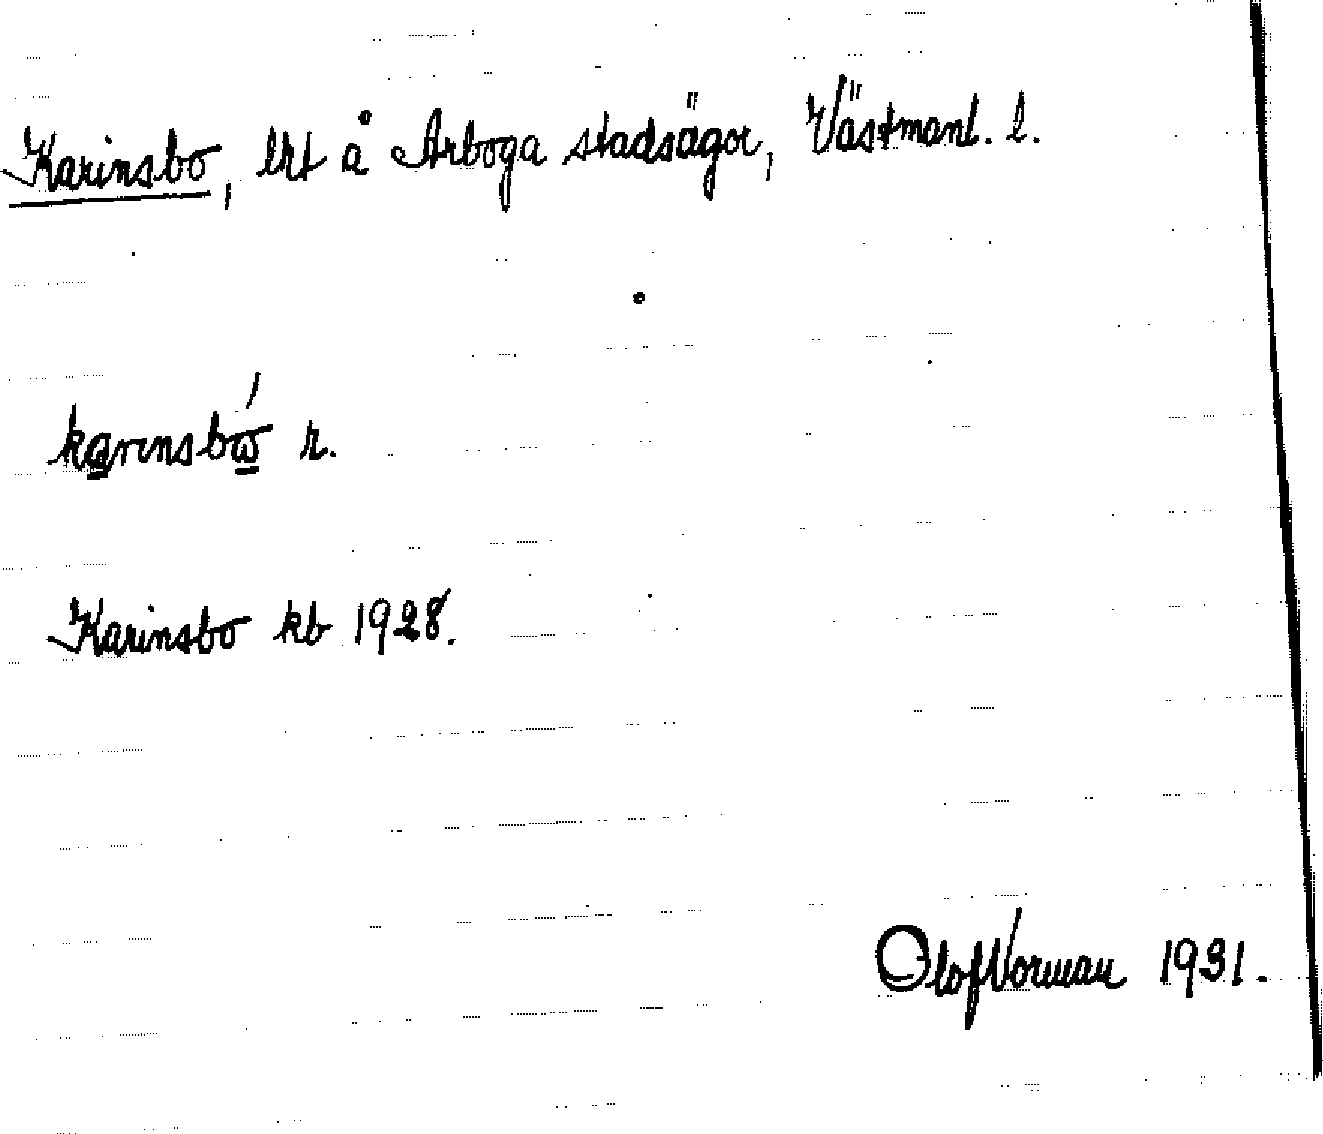 Karinsbo, lht å Arboga stadsägor, Västmanl. l.
karinsbώ̲ r.
Karinsbo kb 1928.
Olof Norman 1931.